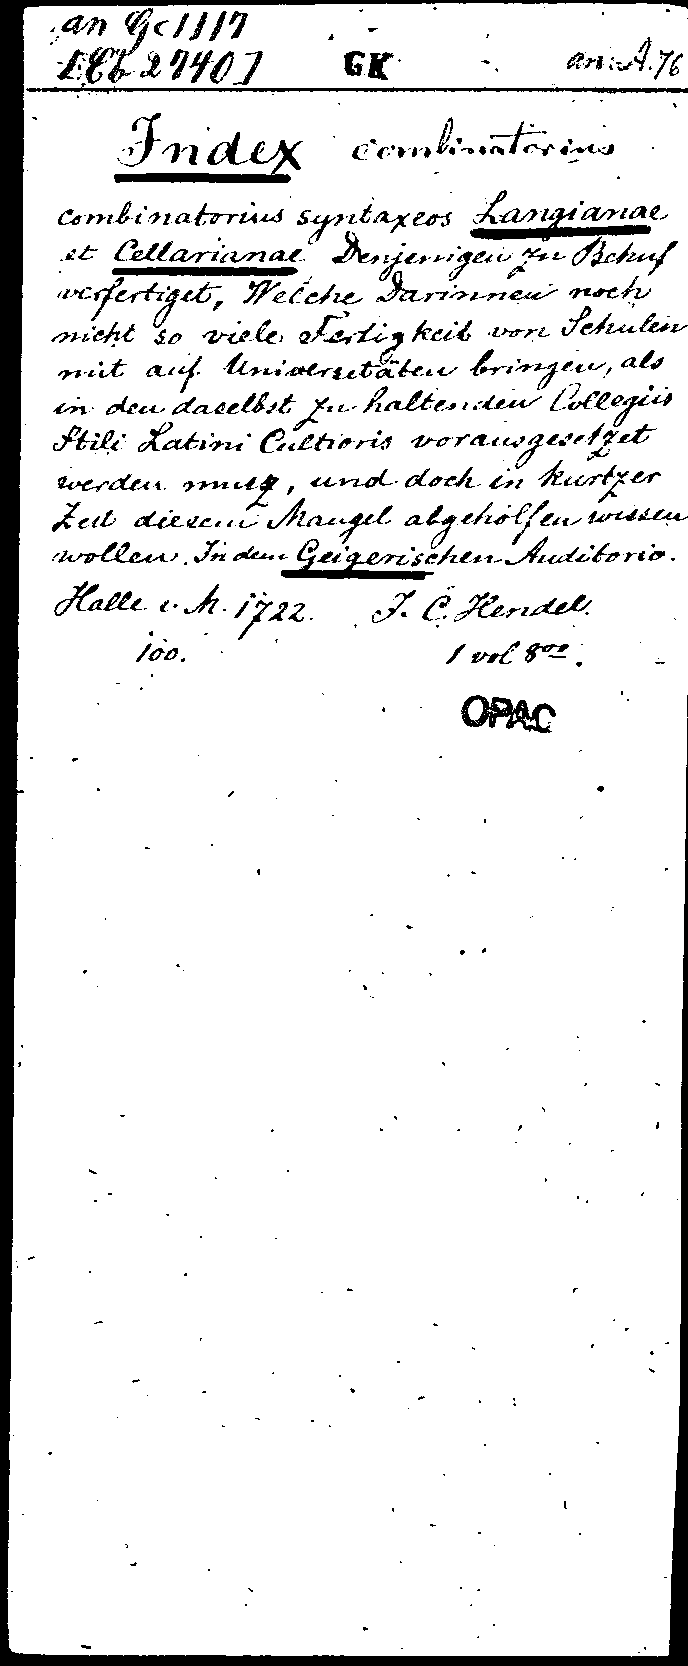 an Gc 1117
[Eb 2740] GK an: A. 76
Index combinatorius
combinatorius syntaxeos Langianae
et Cellarianae Denjenigen zu Behuf
verfertiget, Welche Darinnen noch
nicht so viele Fertigkeit von Schulen
mit auf Universitäten bringen, als
in den daselbst zu haltenden Collegiis
Stili Latini Cultioris vorausgesetzet
werden muß, und doch in kurtzer
Zeit diesem Mangel abgeholfen wissen
wollen. In dem Geigerischen Auditorio.
Halle i. M. 1722. J. C. Hendel.
100. 1 vol 8°.
OPAC